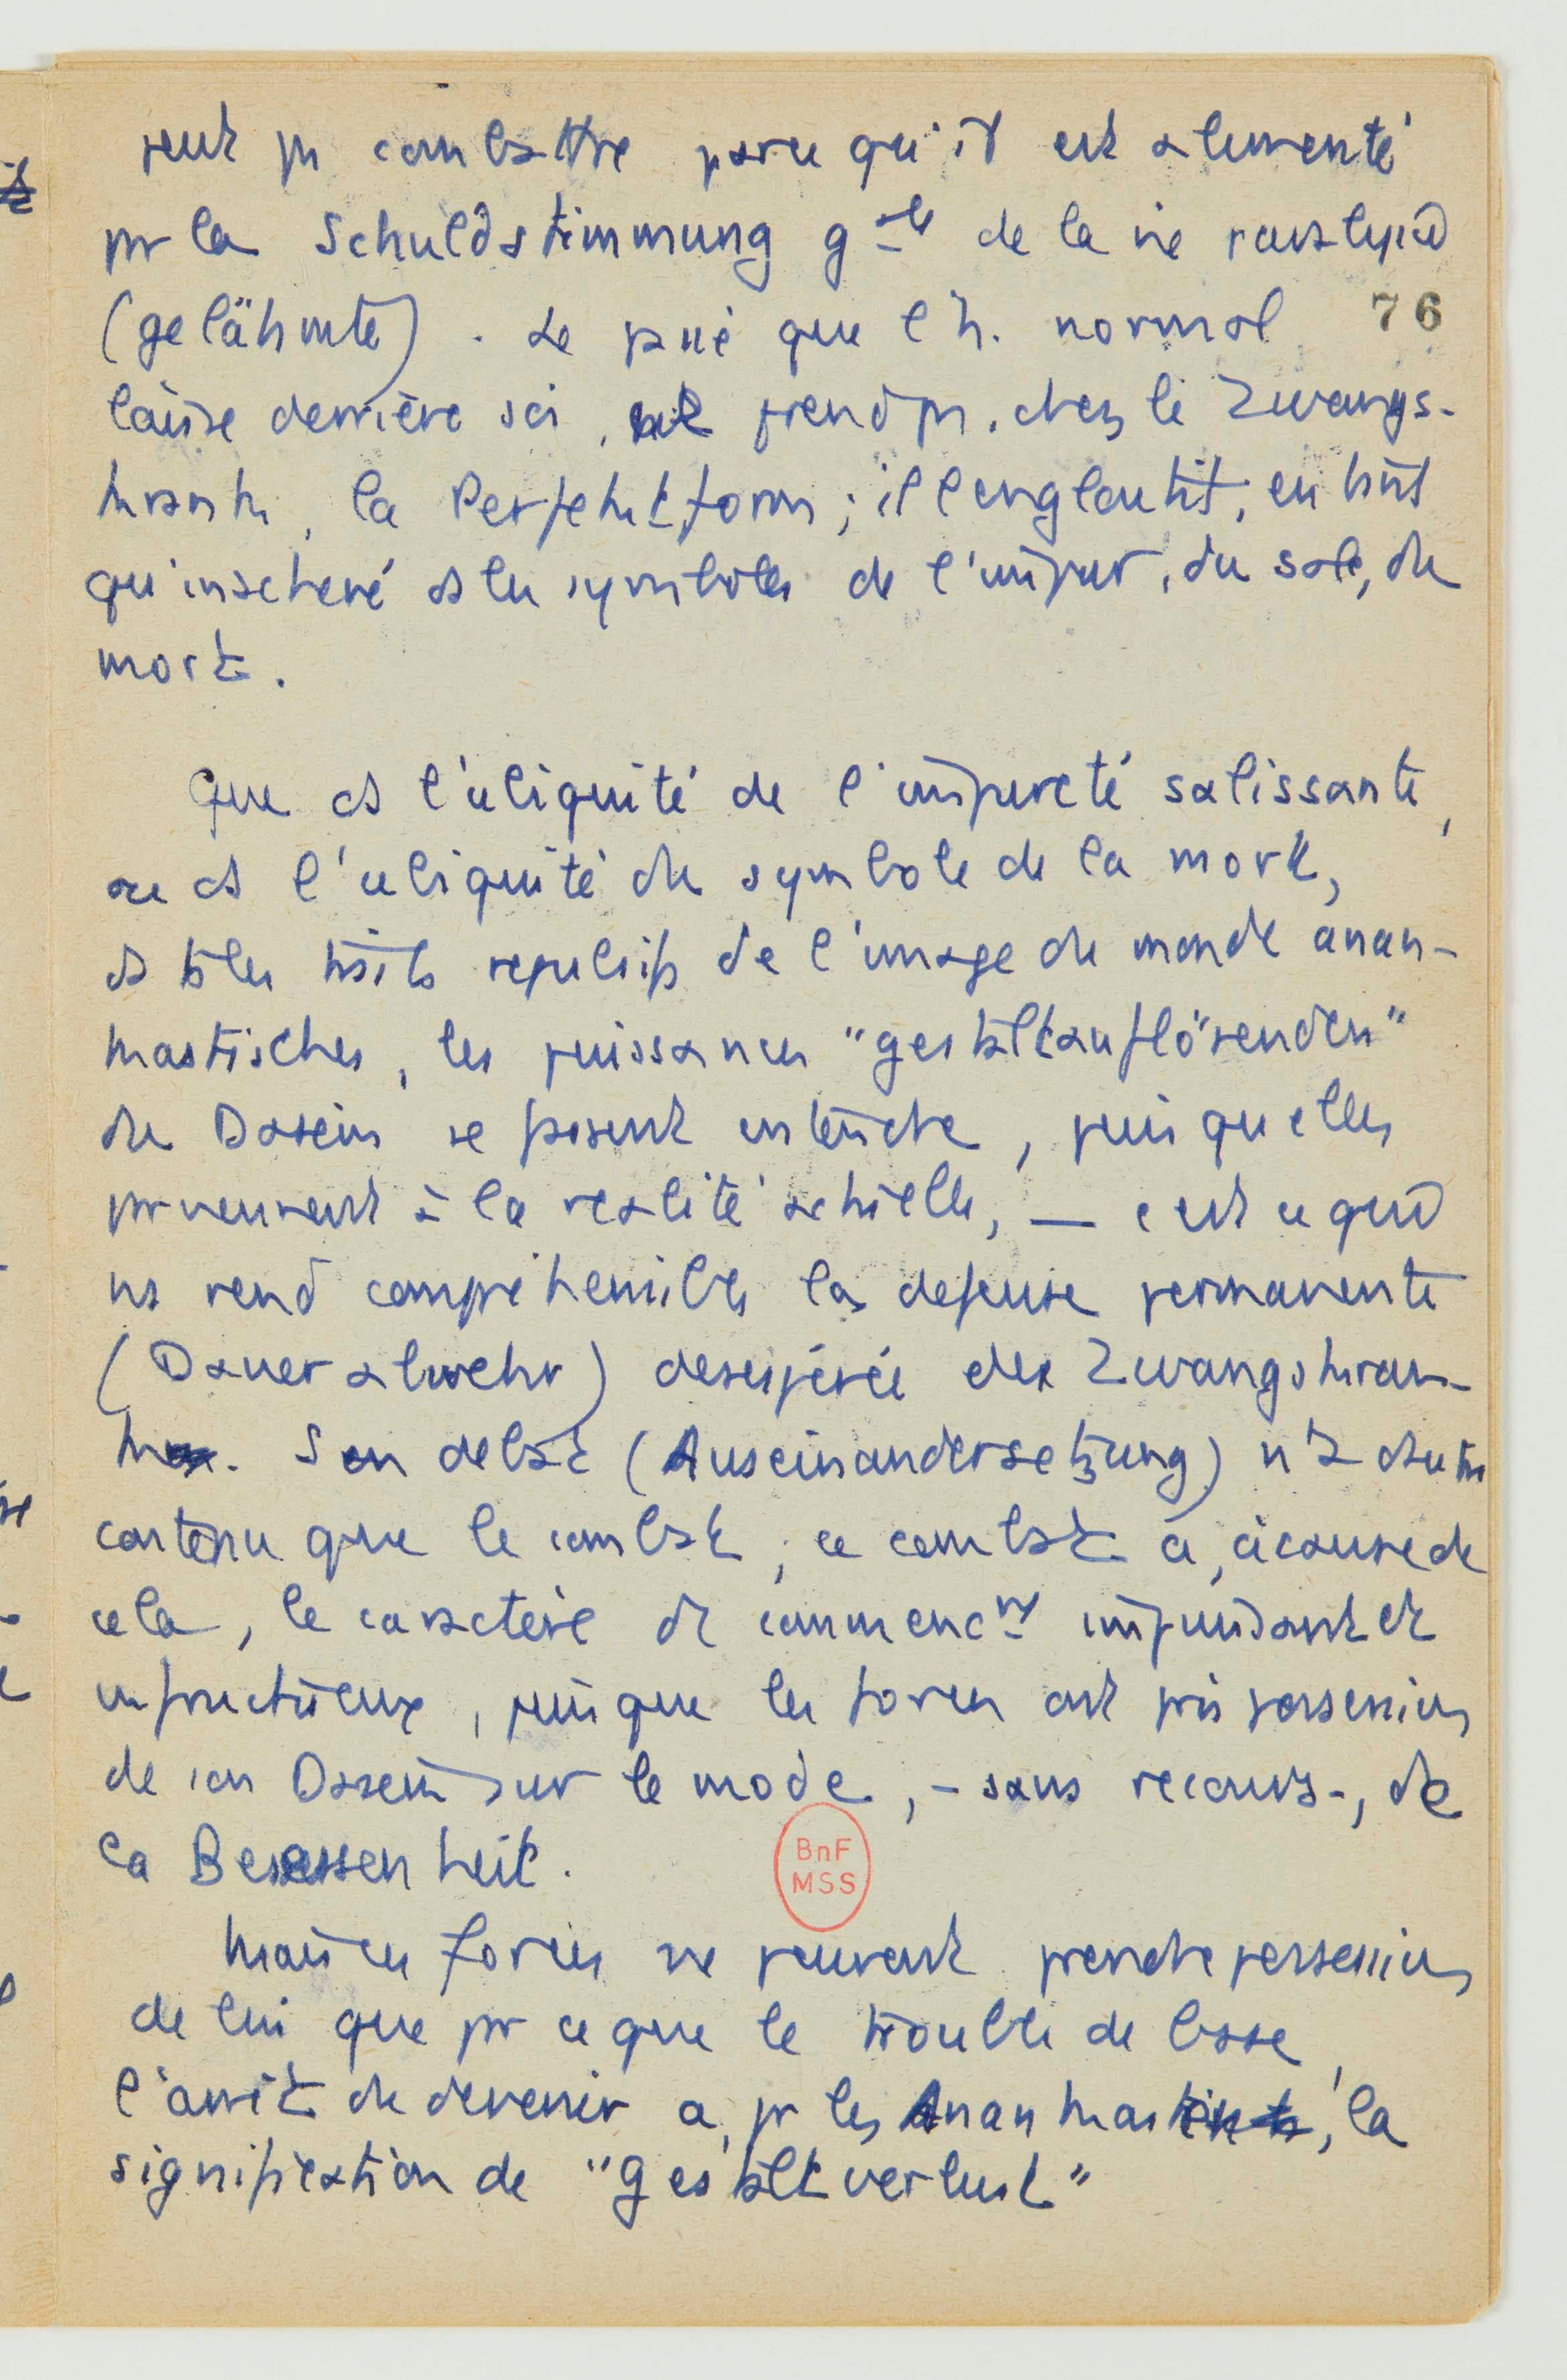 peut pas combattre parce qu'il est alimenté
par la Schuldstimmung gale de la vie paralysée
(gelähmte). Le passé que l'h. normal 76
laisse derrière soi, ne prend pas, chez le Zwangs-
krank, la Perfektform ; il l'engloutit, en tant
qu'inachevé ds les symboles de l'impur, du sale, du
mort.
Que ds l'ubiquité de l'impureté salissante,
ou ds l'ubiquité du symbole de la mort,
ds ts les traits repulsifs de l'image du monde anan-
kastisches, les puissances "gestaltauflösenden"
du Dasein se fassent entendre, puisqu'elles
parviennent à la réalité actuelle, — c'est ce qui
ns rend compréhensible la defense permanente
(Dauerabwehr) desespérée des Zwangskran-
ken. Son debat (Auseinandersetzung) n'a d'autre
contenu que le combat ; ce combat a, à cause de
cela, le caractère de commenct impuissant et
infructueux, puisque les forces ont pris possession
de son Dasein sur le mode, - sans recours -, de
la Besessenheit.
Mais ces forces ne peuvent prendre possession
de lui que par ce que le trouble de base,
l'arrêt du devenir a, pr les Anankasten, la
signification de "Gestaltverlust"
BnF
MSS